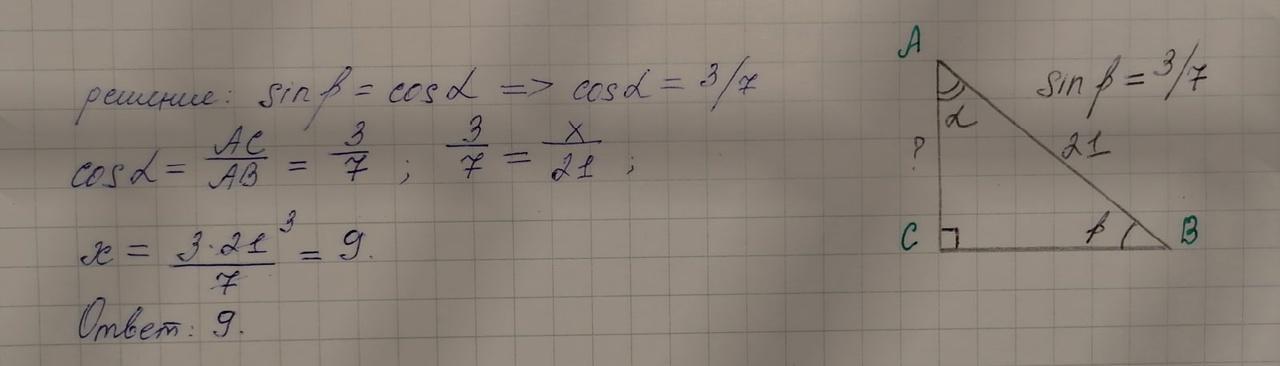 решение: sin β = cos α => cos α = 3/7
cos α = AC/AB = 3/7 ; 3/7 = x/21 ;
x = 3·21³/7 = 9.
Ответ: 9.
A
sin β = 3/7
α
21
?
C
β
B